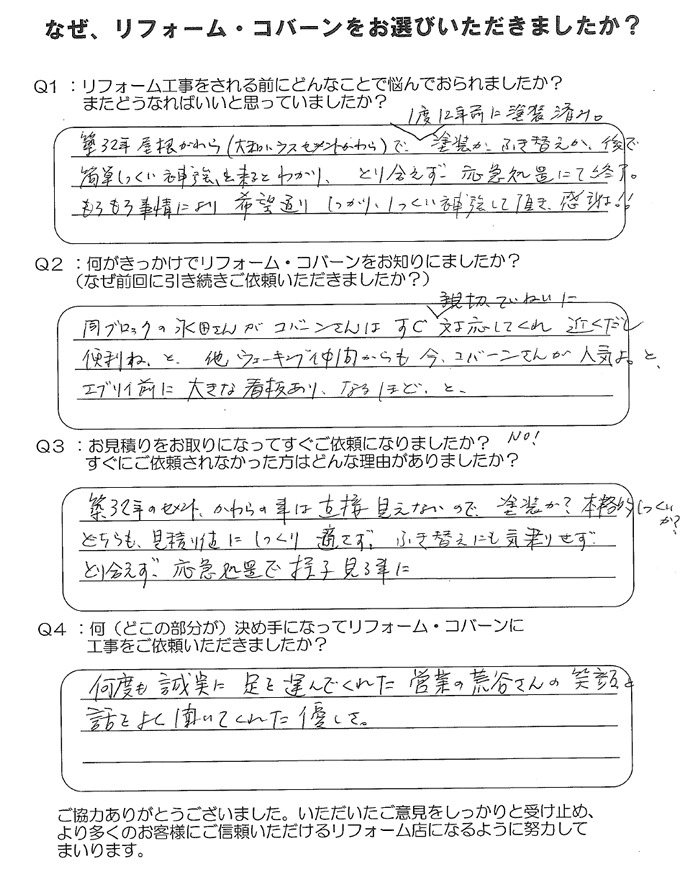 なぜ、リフォーム・コバーンをお選びいただきましたか？
Q1：リフォーム工事をされる前にどんなことで悩んでおられましたか？
またどうなればいいと思っていましたか？
1度12年前に塗装済み。
築32年屋根がわら(大和ハウスセメントかわら)で、塗装か、ふき替えか、後で
簡単しっくい補強も来るとわかり、とり合えず応急処置にて終了。
もろもろ事情により希望通りしっかり、しっくい補強して頂き、感謝!!
Q2：何がきっかけでリフォーム・コバーンをお知りにましたか？
（なぜ前回に引き続きご依頼いただきましたか？）
親切、ていねいに
同ブロックの永田さんがコバーンさんはすぐ対応してくれ近くだし
便利ね、と、他ウォーキング仲間からも今、コバーンさんが人気よ。と、
エブリイ前に大きな看板あり、なるほど、と、
Q3：お見積りをお取りになってすぐご依頼になりましたか？ NO!
すぐにご依頼されなかった方はどんな理由がありましたか？
築32年のセメント、かわらの事は直接見えないので、塗装か?本格的しっくい
か?
どちらも、見積り値にしっくり適さず、ふき替えにも気乗りせず
とり合えず、応急処置で様子見る事に
Q4：何（どこの部分が）決め手になってリフォーム・コバーンに
工事をご依頼いただきましたか？
何度も誠実に足を運んでくれた営業の荒谷さんの笑顔と
話をよく聞いてくれた優しさ。
ご協力ありがとうございました。いただいたご意見をしっかりと受け止め、
より多くのお客様にご信頼いただけるリフォーム店になるように努力して
まいります。